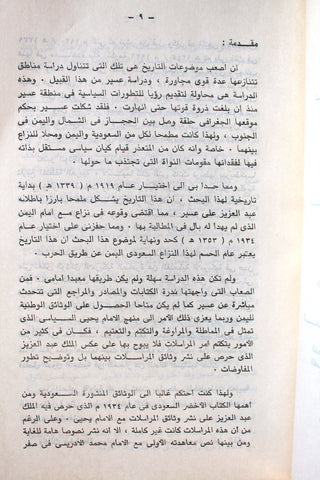 — ٩ —
مقدمة :
ان اصعب موضوعات التاريخ هى تلك التى تتناول دراسة مناطق
تتنازعها عدة قوى مجاورة ، ودراسة عسير من هذا القبيل . وهذه
الدراسة هى محاولة لتقديم رؤيا للتطورات السياسية فى منطقة عسير
منذ ان بلغت ذروة قوتها حتى انهارت . فلقد شكلت عسير بحكم
موقعها الجغرافى حلقة وصل بين الحجاز فى الشمال واليمن فى
الجنوب ، ولهذا كانت مطمحا لكل من السعودية واليمن ومحلا للنزاع
بينهما . خاصة وانه كان من المتعذر قيام كيان سياسى مستقل بذاته
فيها لفقدانها مقومات النواة التى تجتذب ما حولها .
ومما حدا بى الى اختيار عام ١٩١٩ م ( ١٣٣٩ هـ ) بداية
تاريخية لهذا البحث ، ان هذا التاريخ يشكل ملمحا بارزا باطلالة
عبد العزيز على عسير ، مما اقتضى وقوعه فى نزاع مع امام اليمن
الذى لم يهدا له بال فى المطالبة بها . ومما حفزنى على اختيار عام
١٩٣٤ م ( ١٣٥٣ هـ ) كحد ونهاية لموضوع هذا البحث ان هذا التاريخ
يعتبر عام الحسم لهذا النزاع السعودى اليمنى عن طريق الحرب .
ولم تكن هذه الدراسة سهلة ولم يكن طريقها معبدا امامى . فمن
الصعاب التى واجهتها ندرة الكتابات والمصادر والمراجع التى تتحدث
مباشرة عن عسير كما لم يكن متاحا الحصول على الوثائق الوطنية
لليمن وربما يعزى ذلك الامر الى منهج الامام يحيى السياسى الذى
تمثل فى المماطلة والمراوغة والتكتم والتعتيم ، فكان فى كثير من
الامور يتكتم امر المراسلات فلا يبوح بها على عكس الملك عبد العزيز
الذى حرص على نشر وثائق المراسلات بينهما بل وتوضيح تطور
المفاوضات .
ولهذا كنت احتكم غالبا الى الوثائق المنشورة السعودية ومن
اهمها الكتاب الاخضر السعودى فى عام ١٩٣٤ م الذى حرص فيه الملك
عبد العزيز على نشر وثائق المراسلات مع الامام يحيى . وعلى الرغم
من ان هذه المراسلات كانت غير كاملة ، الا انه نشر نصوصا هامة للغاية
ومن بينها نص معاهدته الاولى مع الامام محمد الادريسى فى صفر